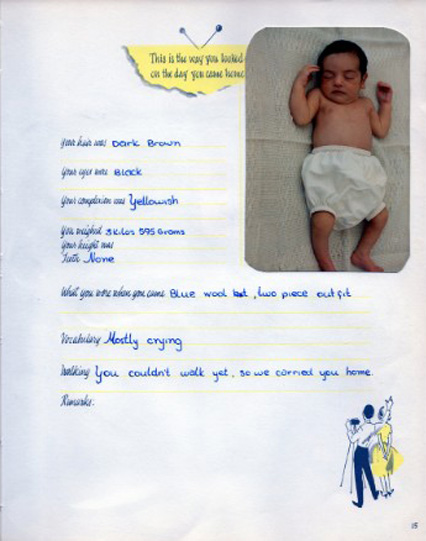 This is the way you looked
on the day you came home
Your hair was Dark Brown
Your eyes were Black
Your complexion was Yellowish
You weighed 3 kilos 595 Grams
Your height was
Teeth None
What you wore when you came Blue wool , two piece outfit
Vocabulary Mostly crying
Walking You couldn't walk yet, so we carried you home.
Remarks:
15